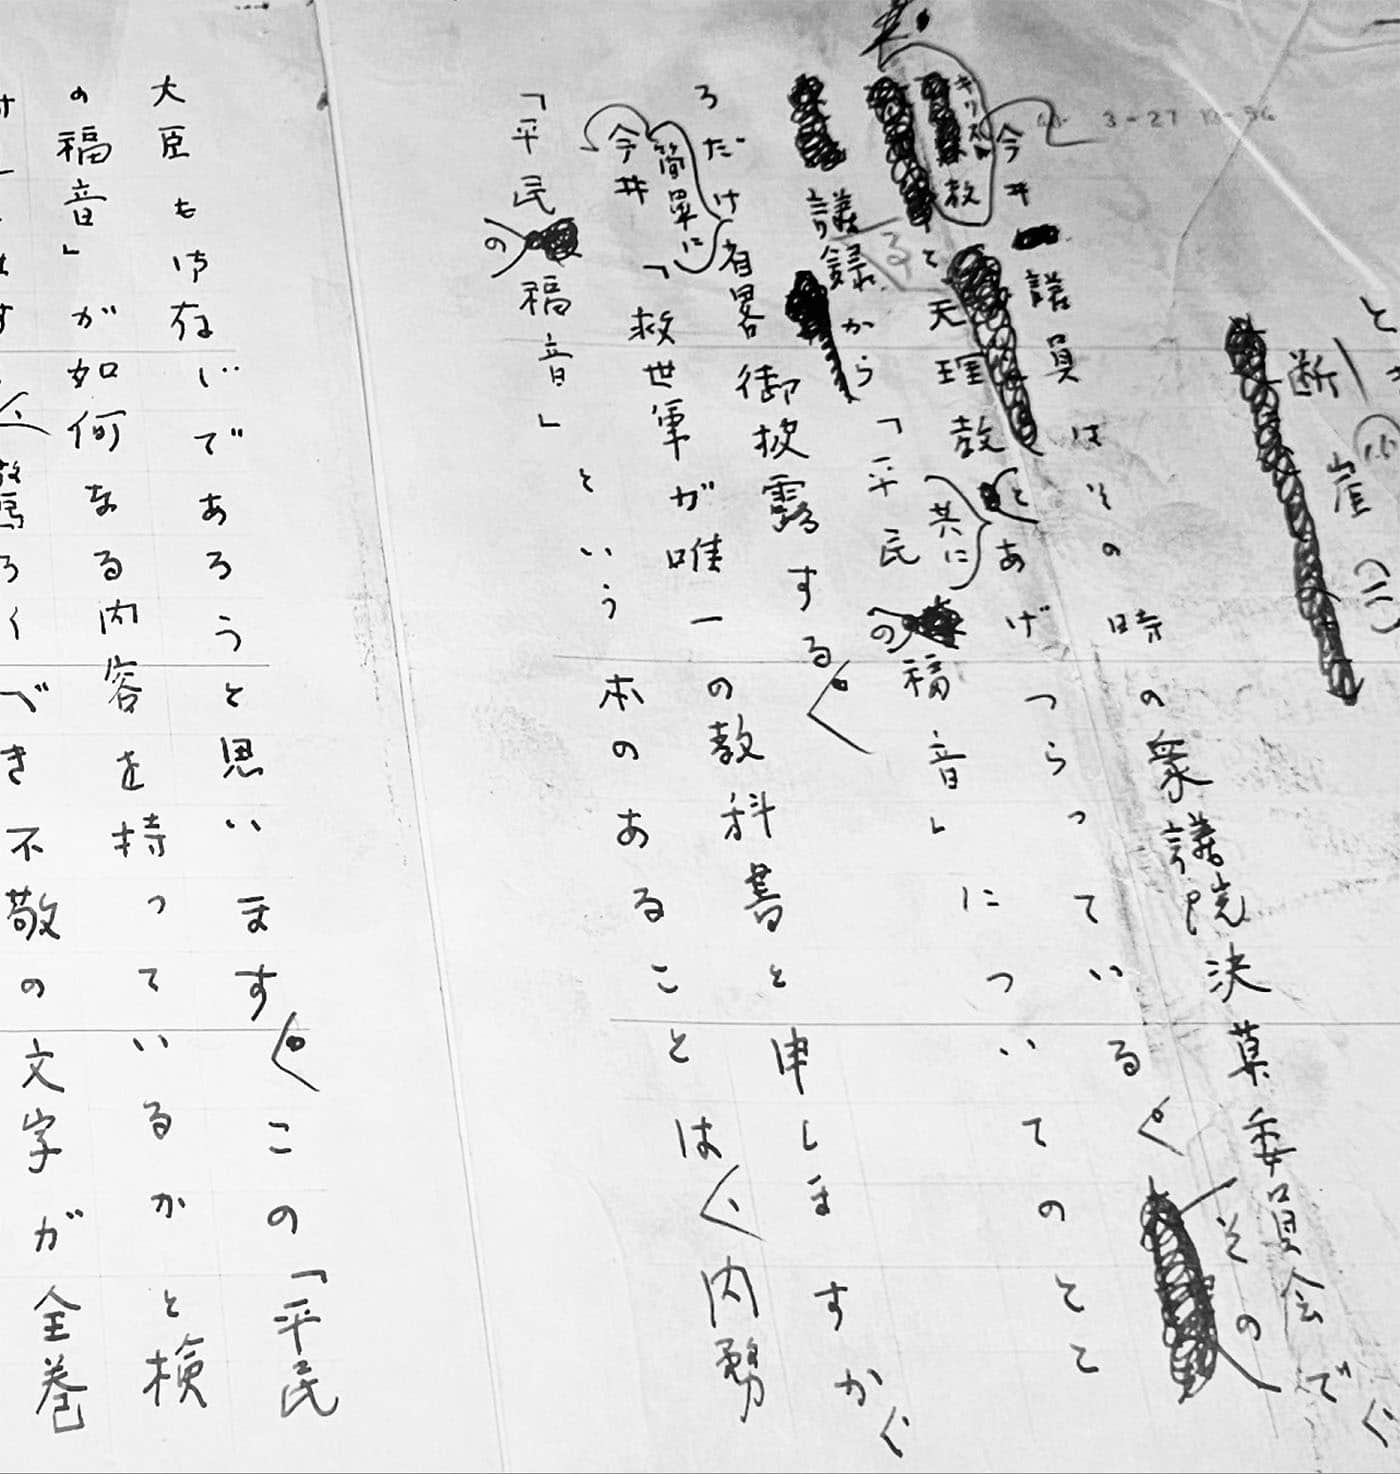 と
断崖(二)
今井議員はその時の衆議院決算委員会で、
キリスト教と天理教とあげつらっている。その
議録から「平民の福音」についてのとこ
共に
ろだけ省畧御披露する。
今井 簡単に「救世軍が唯一の教科書と申しますか、
「平民の福音」という本のあることは、内務
大臣も御存じであろうと思います。この「平民
の福音」が如何なる内容を持っているかと検
驚ろくべき不敬の文字が全巻